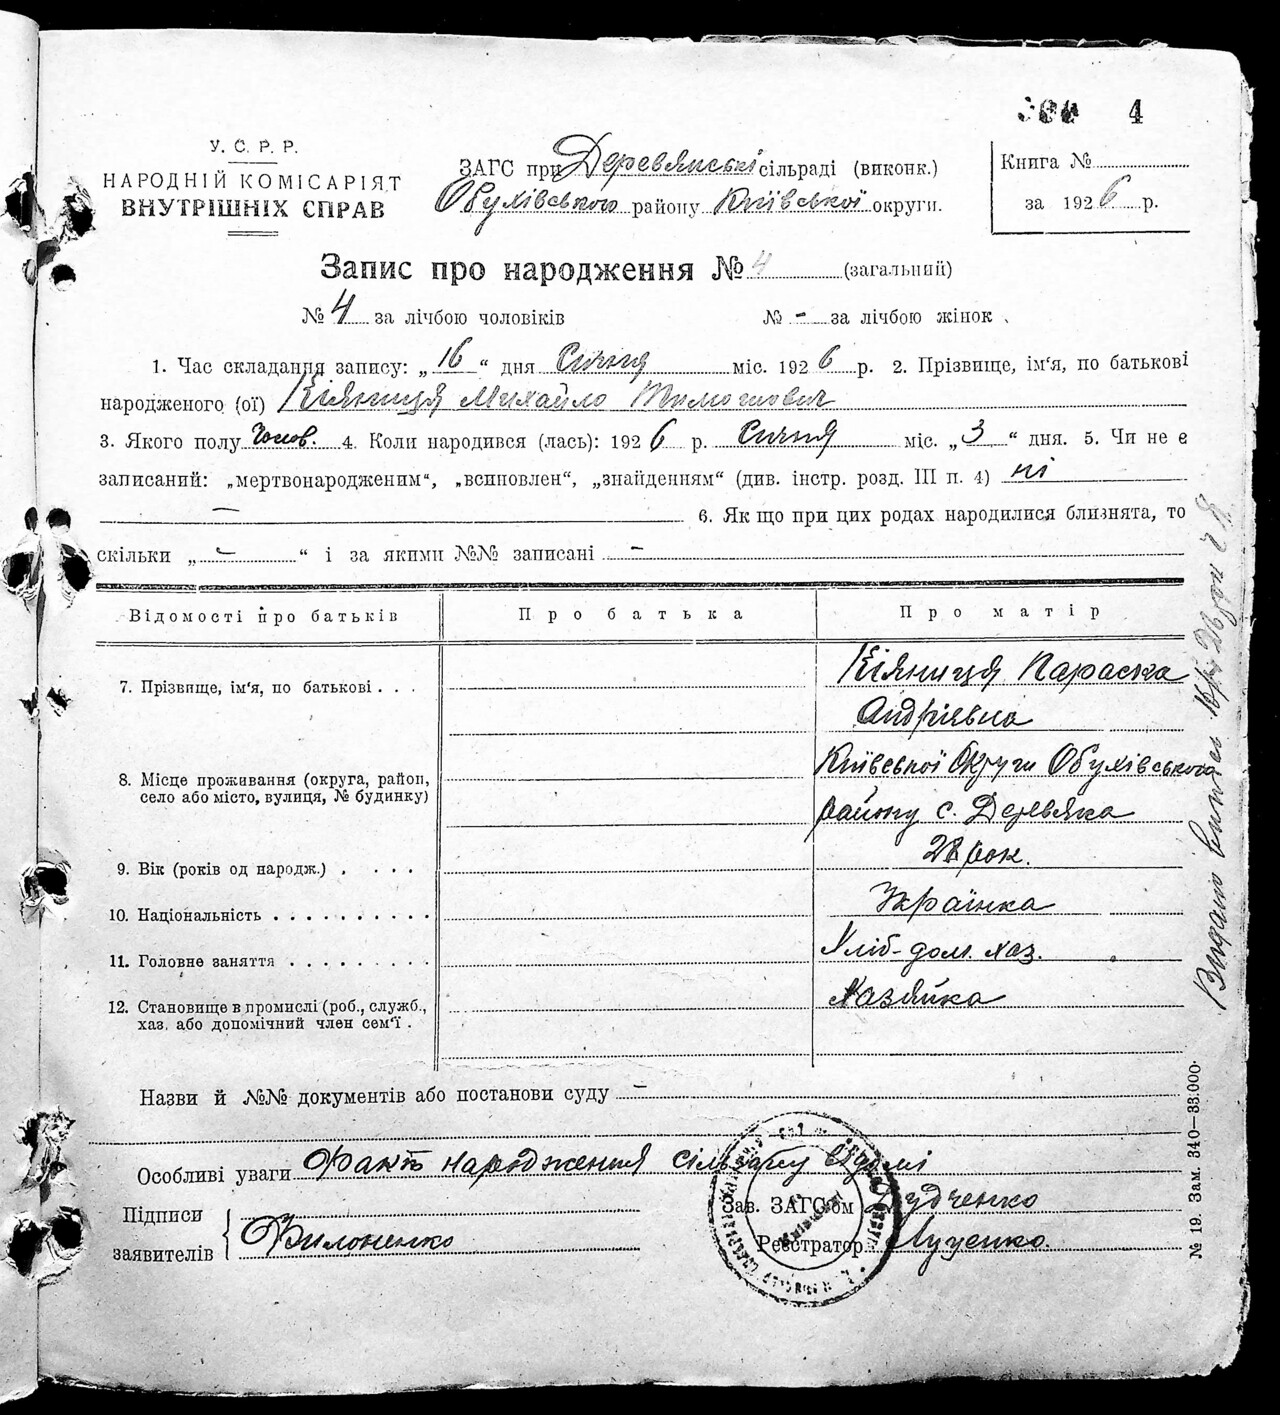 4
У. С. Р. Р.
НАРОДНІЙ КОМІСАРІЯТ
ВНУТРІШНІХ СПРАВ
ЗАГС при Деревянські сільраді (виконк.)
Обухівського району Київської округи.
Книга №
за 1926 р.
Запис про народження № 4 (загальний)
№ 4 за лічбою чоловіків № - за лічбою жінок
1. Час складання запису: „16“ дня Січня міс. 1926 р. 2. Прізвище, ім‘я, по батькові
народженого (ої) Кияниця Михайло Тимошович
3. Якого полу Чолов. 4. Коли народився (лась): 1926 р. Січня міс. „3“ дня. 5. Чи не є
записаний: „мертвонародженим“, „всиновлен“, „знайденням“ (див. інстр. розд. III п. 4) ні
— 6. Як що при цих родах народилися близнята, то
скільки „ - “ і за якими №№ записані -
Відомості про батьків Про батька Про матір
7. Прізвище, ім‘я, по батькові . . . Кіяниця Параска
Андріявна
8. Місце проживання (округа, район, Київської Округи Обухівського
село або місто, вулиця, № будинку) району с. Деревяка
9. Вік (років од народж.) . . . . рок.
10. Національність . . . . . . . . . . Українка
11. Головне заняття . . . . . . . . . Хліб-дом. хаз.
12. Становище в промислі (роб., служб., Хазяйка
хаз. або допомічний член сем‘ї .
Назви й №№ документів або постанови суду -
Особливі уваги Факт народження сільраду відомі
Підписи
заявителів Филоненко
Зав. ЗАГС‘ом Дудченко
Реєстратор Луценко.
№ 19. Зам. 340—33.000.
Видано випись